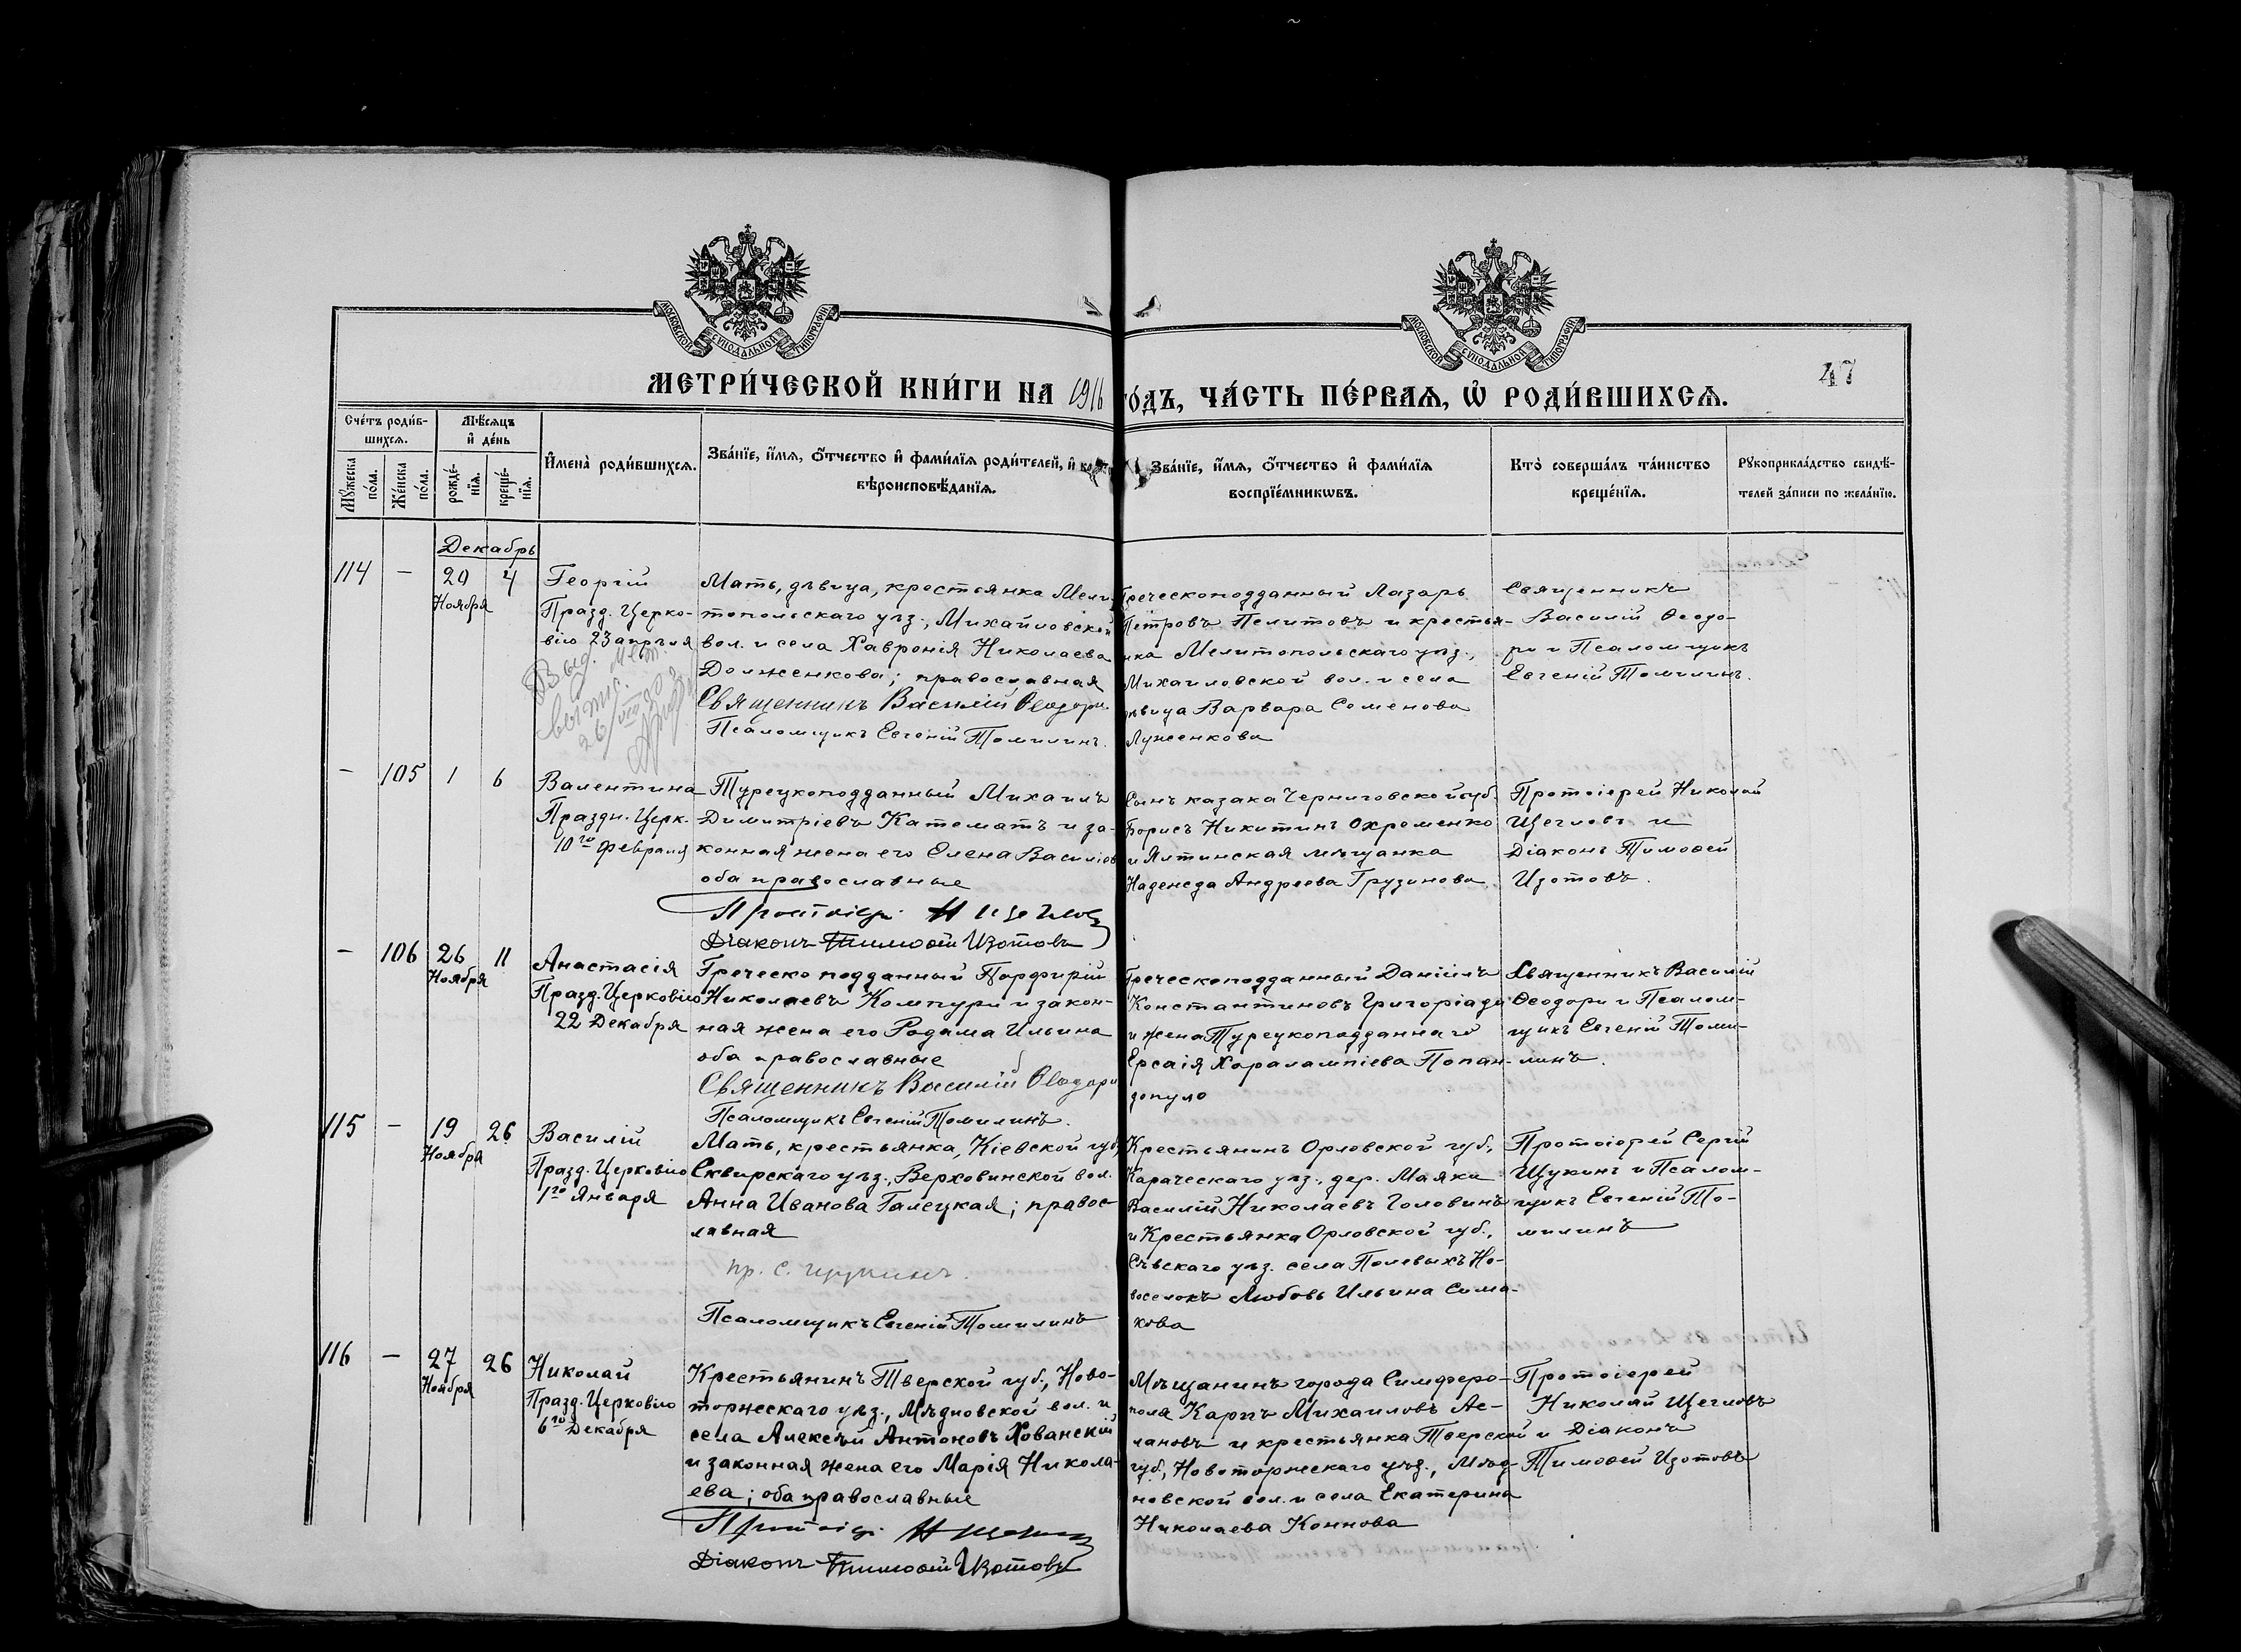 МОСКОВСКОЙ СѴНОДАЛЬНОЙ ТИПОГРАФІИ
МОСКОВСКОЙ СѴНОДАЛЬНОЙ ТИПОГРАФІИ
47
МЕТРИ́ЧЕСКОЙ КНИ́ГИ НА 1916 ГО́ДЪ, ЧА́СТЬ ПЕ́РВАѦ, Ѡ҆ РОДИ́ВШИХСѦ.
Сче́тъ роди́в-
шихсѧ.
Мꙋ́жеска
по́ла.
Же́нска
по́ла.
Мѣ́сѧцъ
и҆ де́нь
рожде́-
нїѧ.
креще́-
нїѧ.
И҆мена̀ роди́вшихсѧ.
Зва́нїе, и҆́мѧ, ѻ҆́тчество и҆ фами́лїѧ роди́телей, и҆
вѣроисповѣ́данїѧ.
Зва́нїе, и҆́мѧ, ѻ҆́тчество и҆ фами́лїѧ
воспрїе́мникѡвъ.
Кто̀ соверша́лъ та́инство
креще́нїѧ.
Рꙋкоприкла́дство свидѣ́-
телей за́писи по жела́нїю.
Декабрь
114
—
20
Ноября
4
Георгій
Празд. Церко-
вію 23 апрѣля
Выд. мет.
выпис.
Мать, дѣвица, крестьянка Мели-
топольскаго уѣз., Михайловской
вол. и села Хавронія Николаева
Долженкова; православная
Священникъ Василій Ѳеодори
Псаломщикъ Евгеній Томилинъ.
Греческоподданный Лазарь
Петровъ Пелитовъ и крестья-
нка Мелитопольскаго уѣз.,
Михаиловской вол. и села
дѣвица Варвара Семенова
Луженкова
Священникъ
Василій Ѳеодо-
ри и Псаломщикъ
Евгеній Томилинъ.
—
105
1
6
Валентина
Праздн. Церк.
10го февраля
Турецкоподданный Михаилъ
Димитріевъ Катоматъ и за-
конная жена его Елена Василіев
оба православные
Протоіер. Н Щеглов
Діаконъ Тимоѳей Изотовъ
Сынъ казака Черниговской губ.
Борисъ Никитинъ Охременко
и Ялтинская мѣщанка
Надежда Андреева Грузинова
Протоіерей Николай
Щегловъ и
Діаконъ Тимоѳей
Изотовъ.
—
106
26
Ноября
11
Анастасія
Празд. Церковію
22 Декабря
Греческоподданный Порфирій
Николаевъ Компури и закон-
ная жена его Родама Ильина
оба православные
Священникъ Василій Ѳеодори
Псаломщикъ Евгеній Томилинъ.
Греческоподданный Даніилъ
Константиновъ Григоріади
и жена Турецкоподданнаго
Ерсаія Харалампіева Попан-
допуло
Священникъ Василій
Ѳеодори и Псалом-
щикъ Евгеній Томи-
линъ.
115
—
19
Ноября
26
Василій
Празд. Церковію
1го Января
Мать, крестьянка, Кіевской губ.,
Сквирскаго уѣз., Верховинской вол.
Анна Иванова Галецкая; правос-
лавная
пр. С. Щукинъ.
Псаломщикъ Евгеній Томилинъ
Крестьянинъ Орловской губ.,
Караческаго уѣз., дер. Маяки
Василій Николаевъ Головинъ
и Крестьянка Орловской губ.,
Сѣвскаго уѣз. села Полевыхъ Но-
воселокъ Любовь Ильина Сима-
кова
Протоіерей Сергій
Щукинъ и Псалом-
щикъ Евгеній То-
милинъ
116
—
27
Ноября
26
Николай
Празд. Церковію
6го Декабря
Крестьянинъ Тверской губ., Ново-
торжескаго уѣз., Мѣдновской вол. и
села Алексѣй Антоновъ Хованскій
и законная жена его Марія Никола-
ева; оба православные
Протоіер. Н Щеглов
Діаконъ Тимоѳей Изотовъ
Мѣщанинъ города Симферо-
поля Карпъ Михаиловъ Ас-
лановъ и крестьянка Тверской
губ., Новоторжескаго уѣз., Мѣд-
новской вол. и села Екатерина
Николаева Коннова
Протоіерей
Николай Щегловъ
и Діаконъ
Тимоѳей Изотовъ